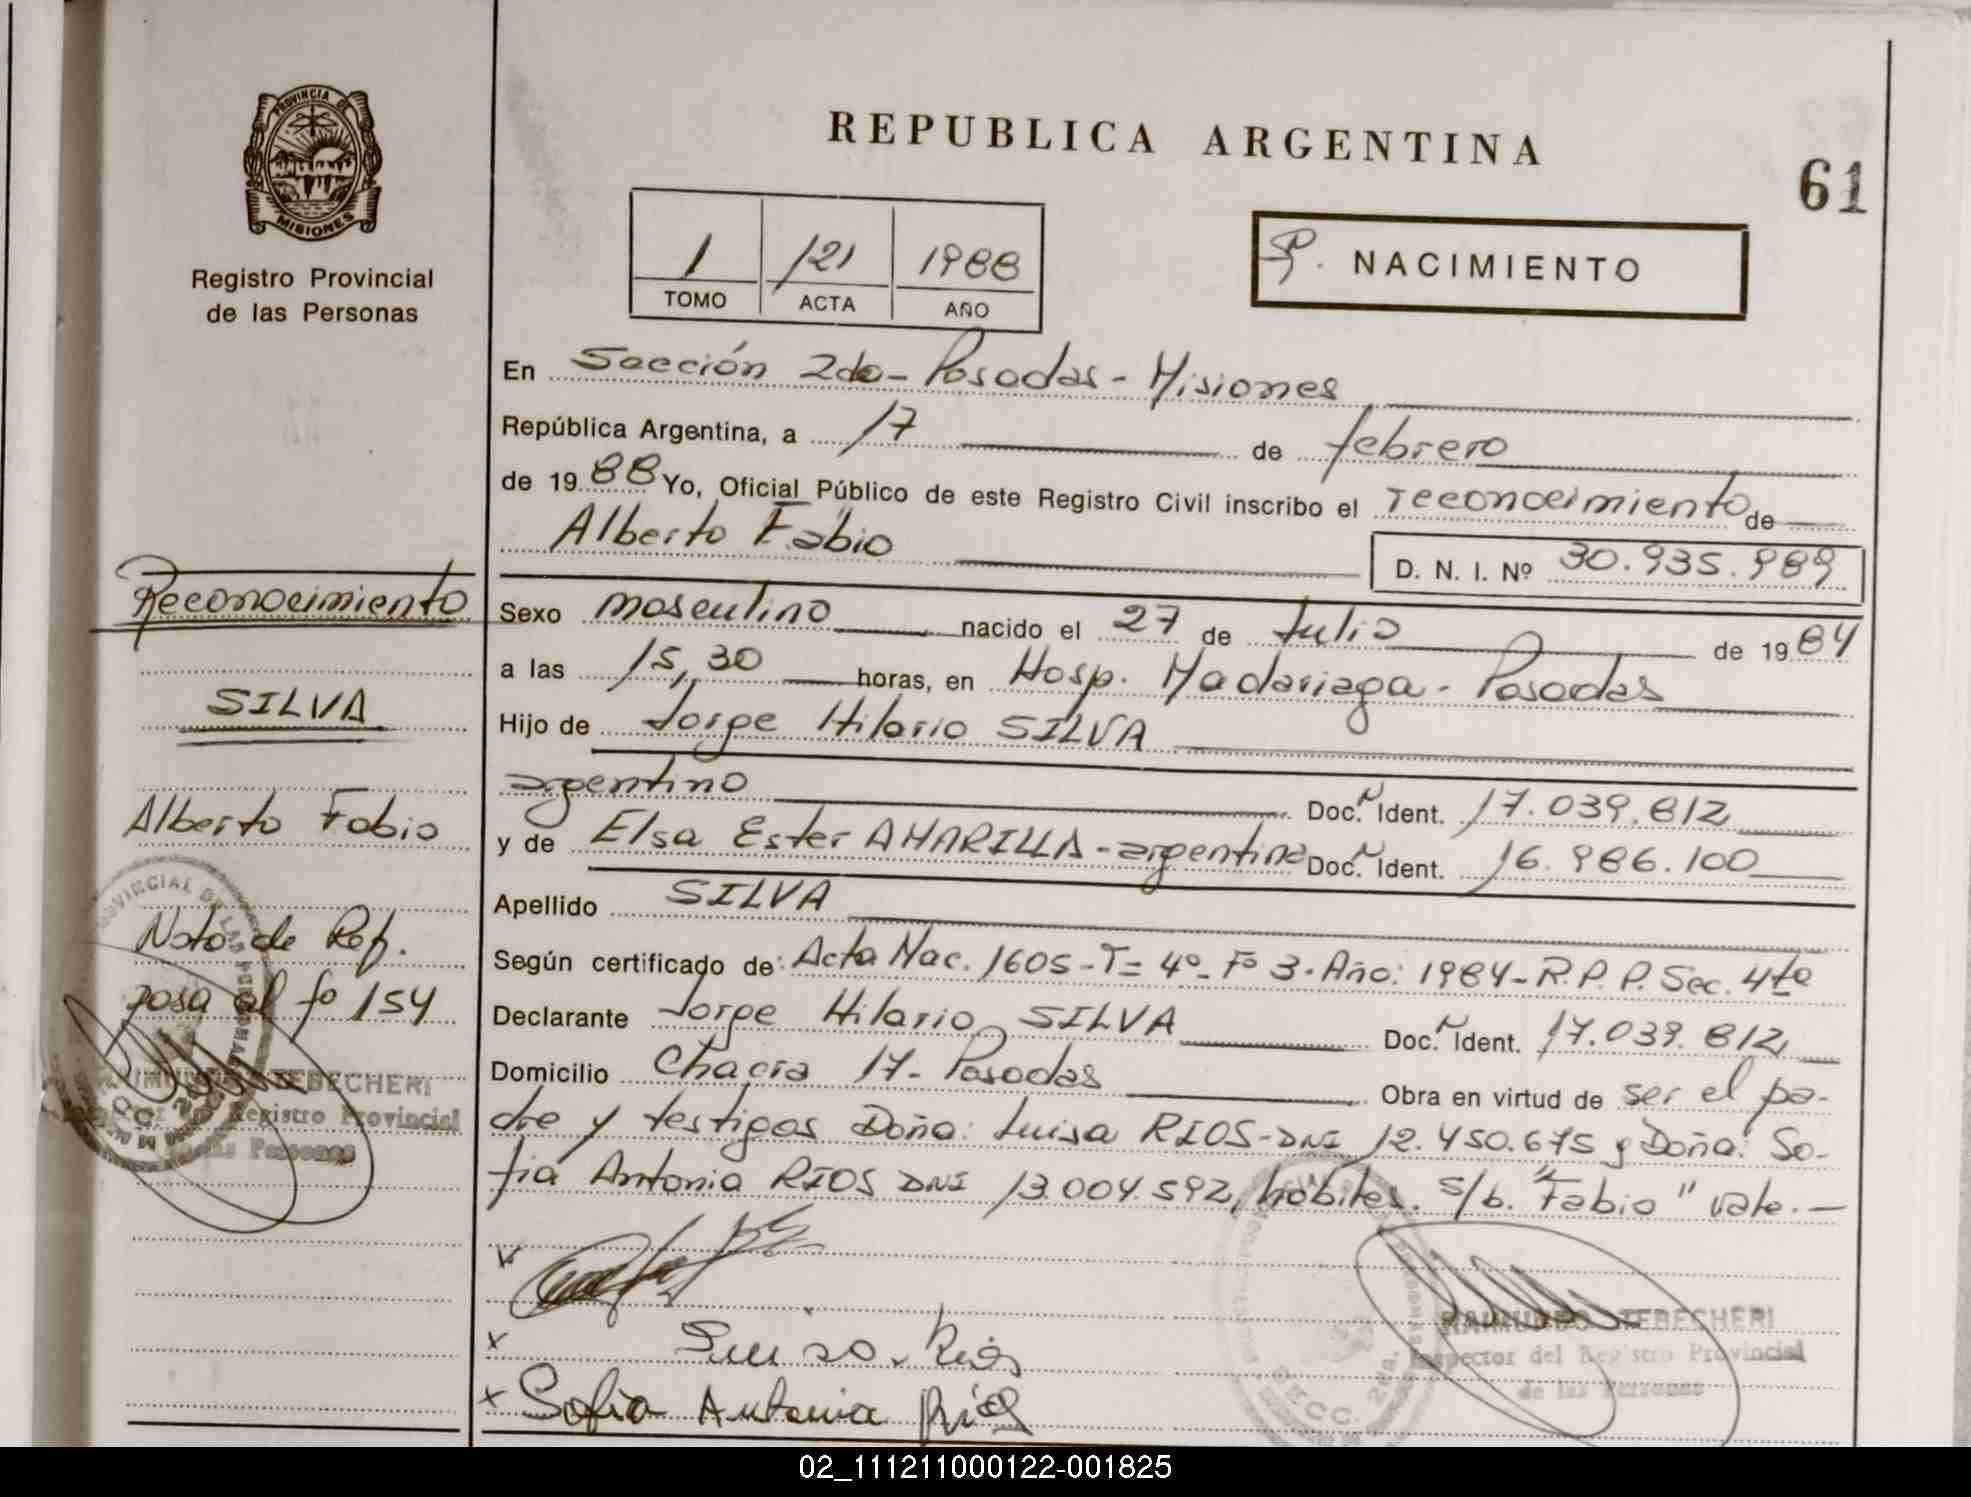 PROVINCIA DE
MISIONES
Registro Provincial
de las Personas
REPUBLICA ARGENTINA
61
1 121 1988
TOMO ACTA AÑO
NACIMIENTO
En Sección 2da - Posadas - Misiones
República Argentina, a 17 de febrero
de 1988 Yo, Oficial Público de este Registro Civil inscribo el reconocimiento de
Alberto Fabio
D. N. I. Nº 30.935.989
Sexo masculino nacido el 27 de Julio de 1984
a las 15,30 horas, en Hosp. Madariaga - Posadas
Hijo de Jorge Hilario SILVA
argentino Doc. Ident. 17.039.812
y de Elsa Ester AMARILLA - argentina Doc. Ident. 16.986.100
Apellido SILVA
Según certificado de: Acta Nac. 1605 - T= 4º - Fº 3 - Año: 1984 - R.P.P. Sec. 4ta
Declarante Jorge Hilario SILVA Doc. Ident. 17.039.812
Domicilio Chacra 17 - Posadas Obra en virtud de ser el pa-
dre y testigos Doña: Luisa RIOS - DNI 12.450.675 y Doña: So-
fia Antonia RIOS DNI 13.004.592, hábiles. s/b. "Fabio" vale. —
Luisa Rios
Sofia Antonia Rios
RAIMUNDO TEBECHERI
Inspector del Registro Provincial
de las Personas
Reconocimiento
SILVA
Alberto Fabio
Nota de Ref.
pasa al fº 154
RAIMUNDO TEBECHERI
Inspector del Registro Provincial
de las Personas
02_111211000122-001825